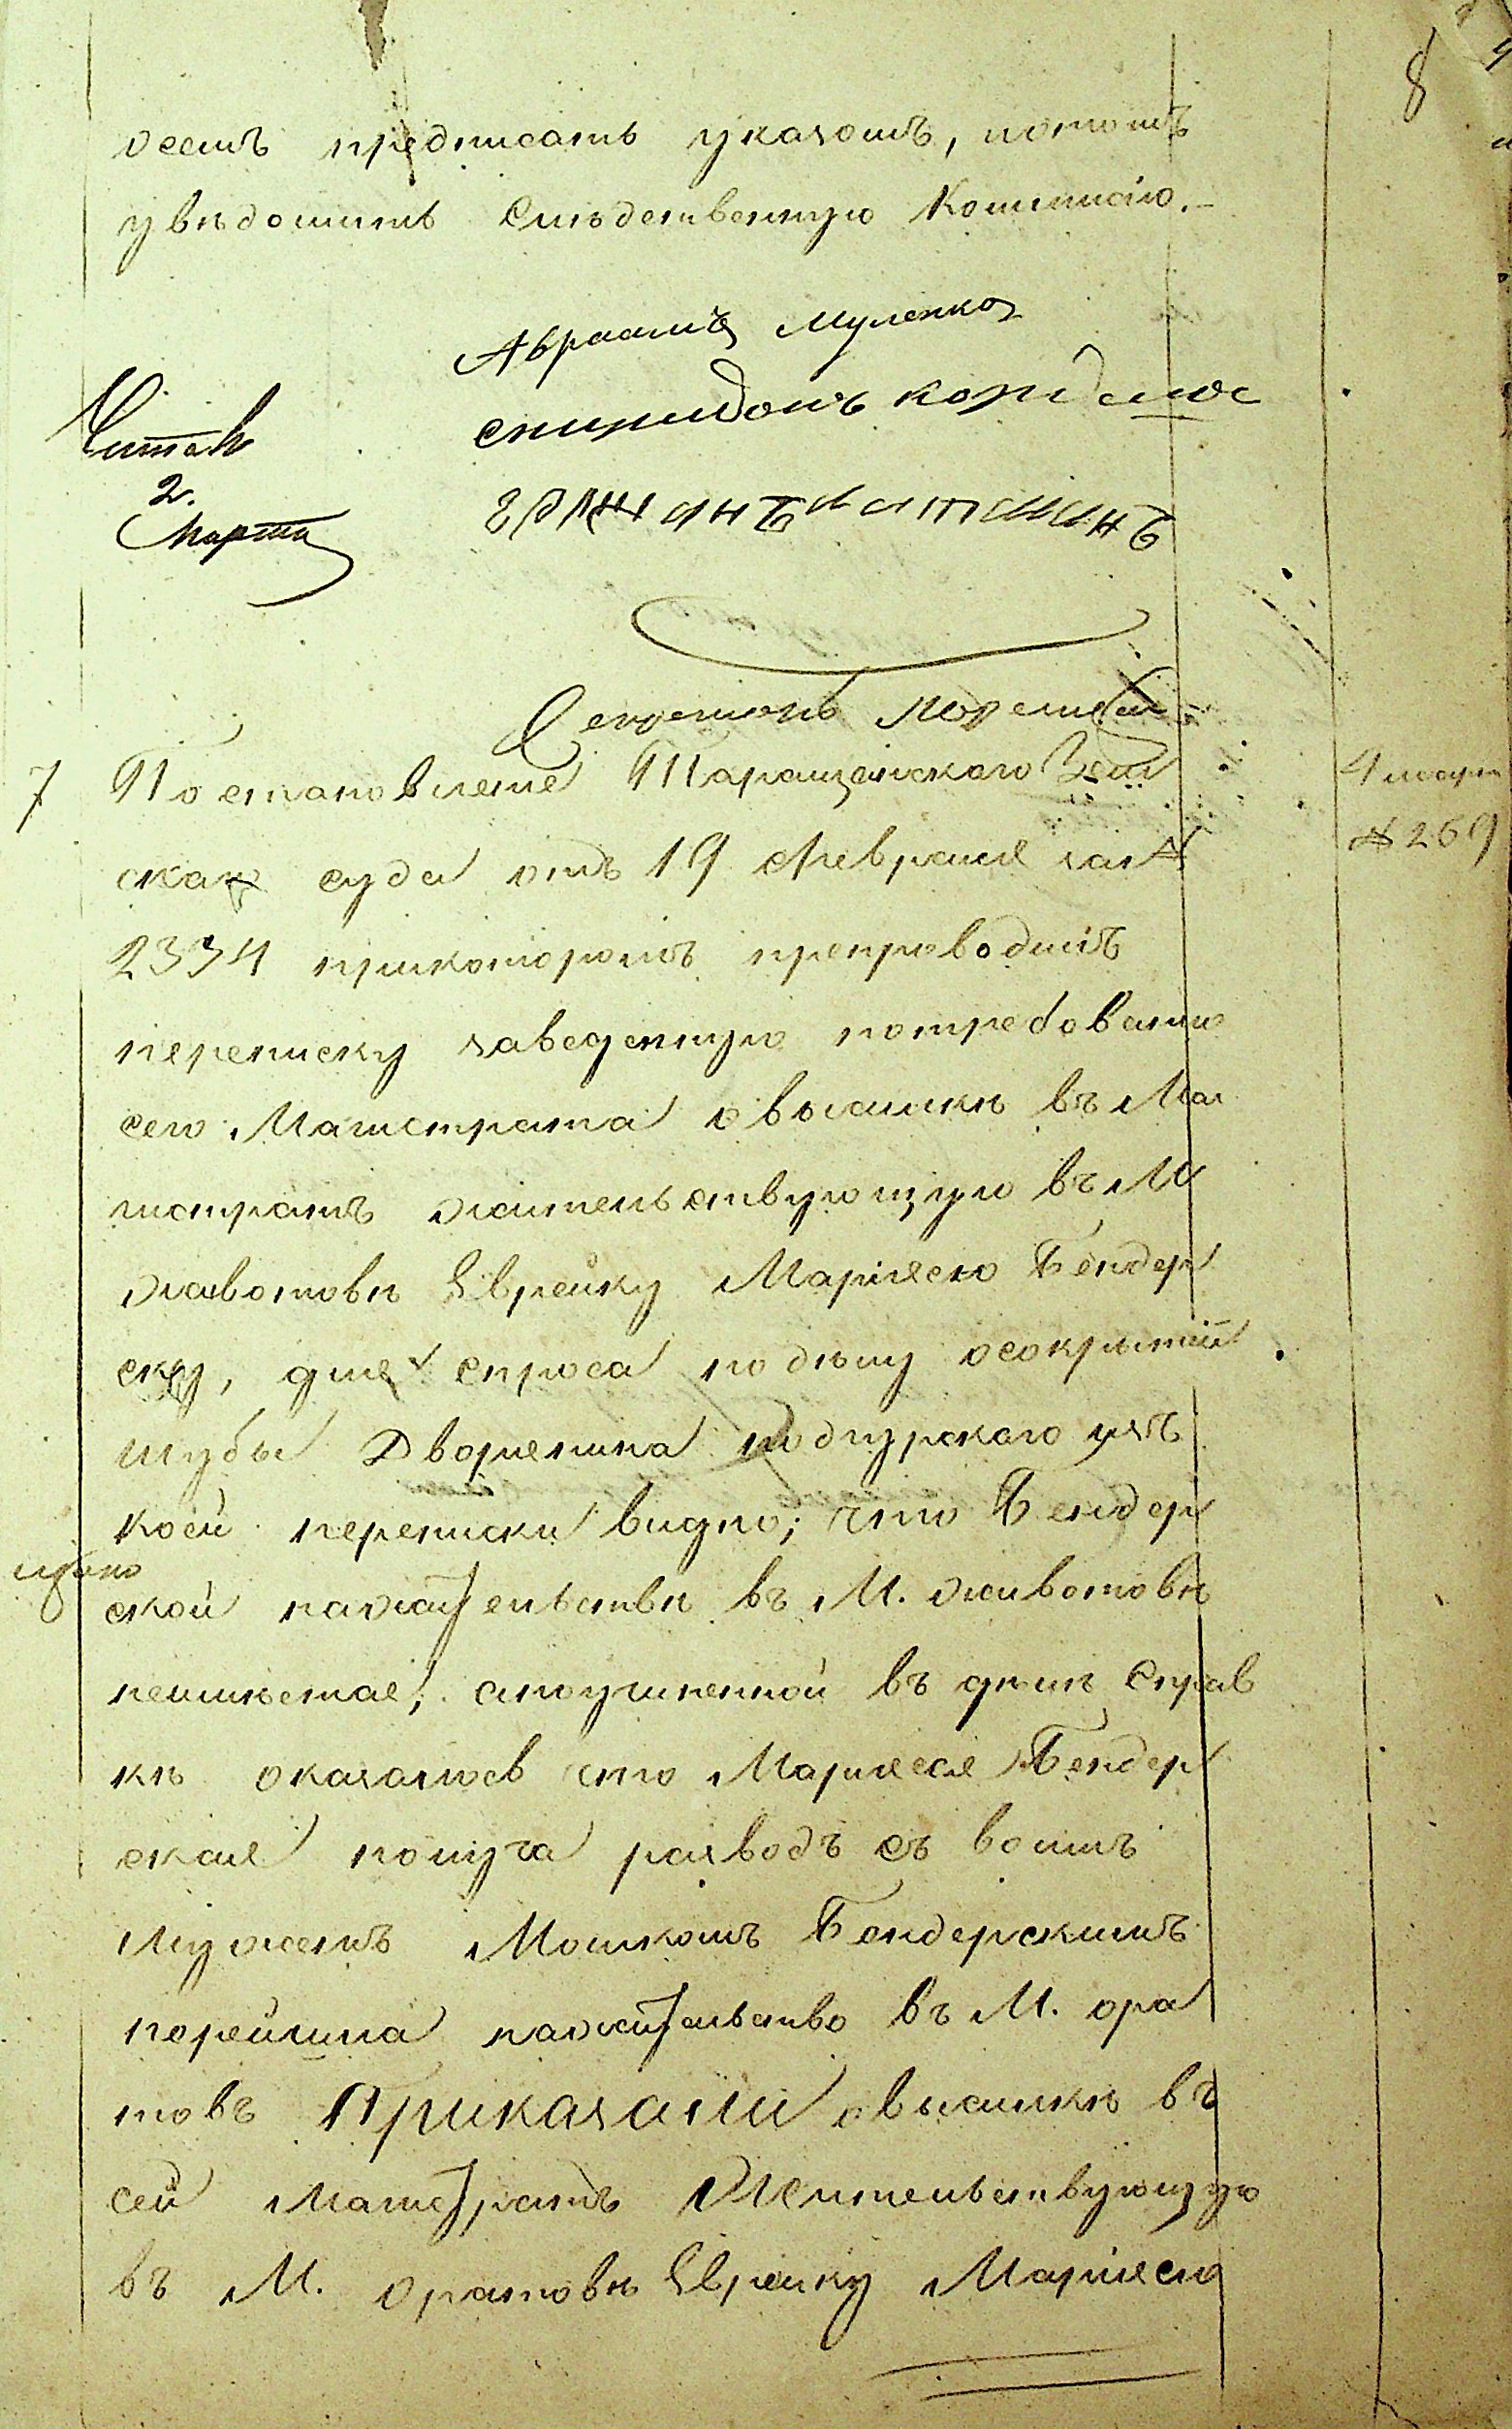 8
предписать указомъ, потомъ
увѣдомить Слѣдственную Коммисiю.–
Авраамъ Муленко
спиридонъ
Читалъ
2.
Марта
Секретарь
7 Постановленiе Таращанскаго Зем
скаго суда отъ 19 Февраля за №
2334 прикоторомъ препроводилъ
переписку заведенную потребованiю
сего Магистрата о высылкѣ въ Ма
гистратъ жительствующую въ М
животовѣ Еврейку Марiясю Бендер
ску, для спроса подѣлу осокрытiи
шубы Дворянина Подгурскаго изъ
коей переписки видно, что Бендер
ской нажительствѣ въ М. животовѣ
неимѣется, а поучиненной въ дѣлѣ справ
кѣ оказалось что Марiяся Бендер
ская получа разводъ съ
мужемъ Мошкомъ Бендерскимъ
перейшла нажительство въ М. ора
товъ Приказали о высылкѣ въ
сей Магистратъ Жительствующую
въ М. Оратовѣ Еврейку Марiясю
4 марта
№ 269